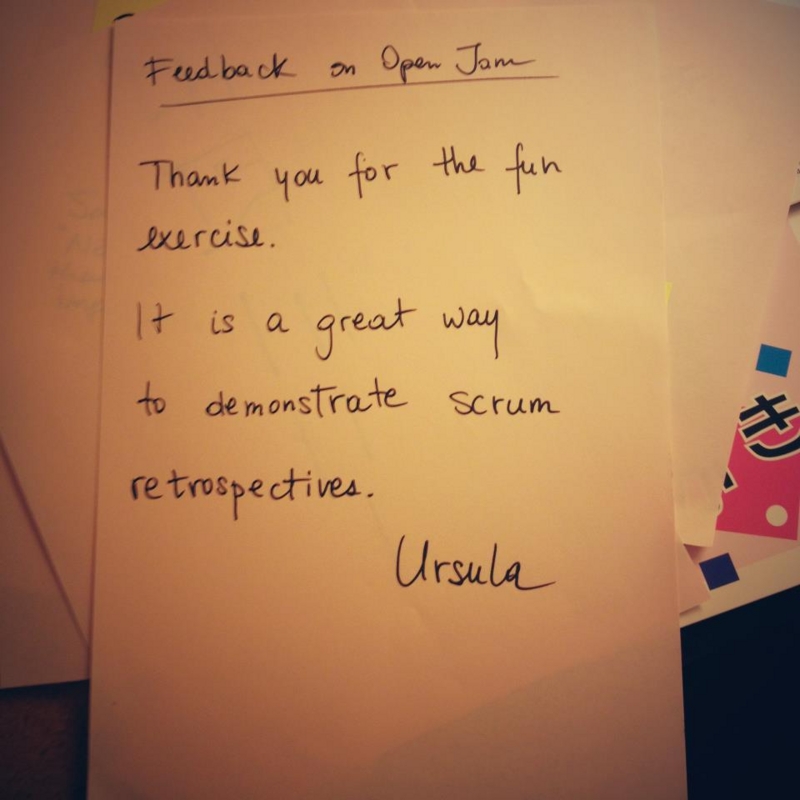 Feedback on Open Jam
Thank you for the fun
exercise.
It is a great way
to demonstrate scrum
retrospectives.
Ursula